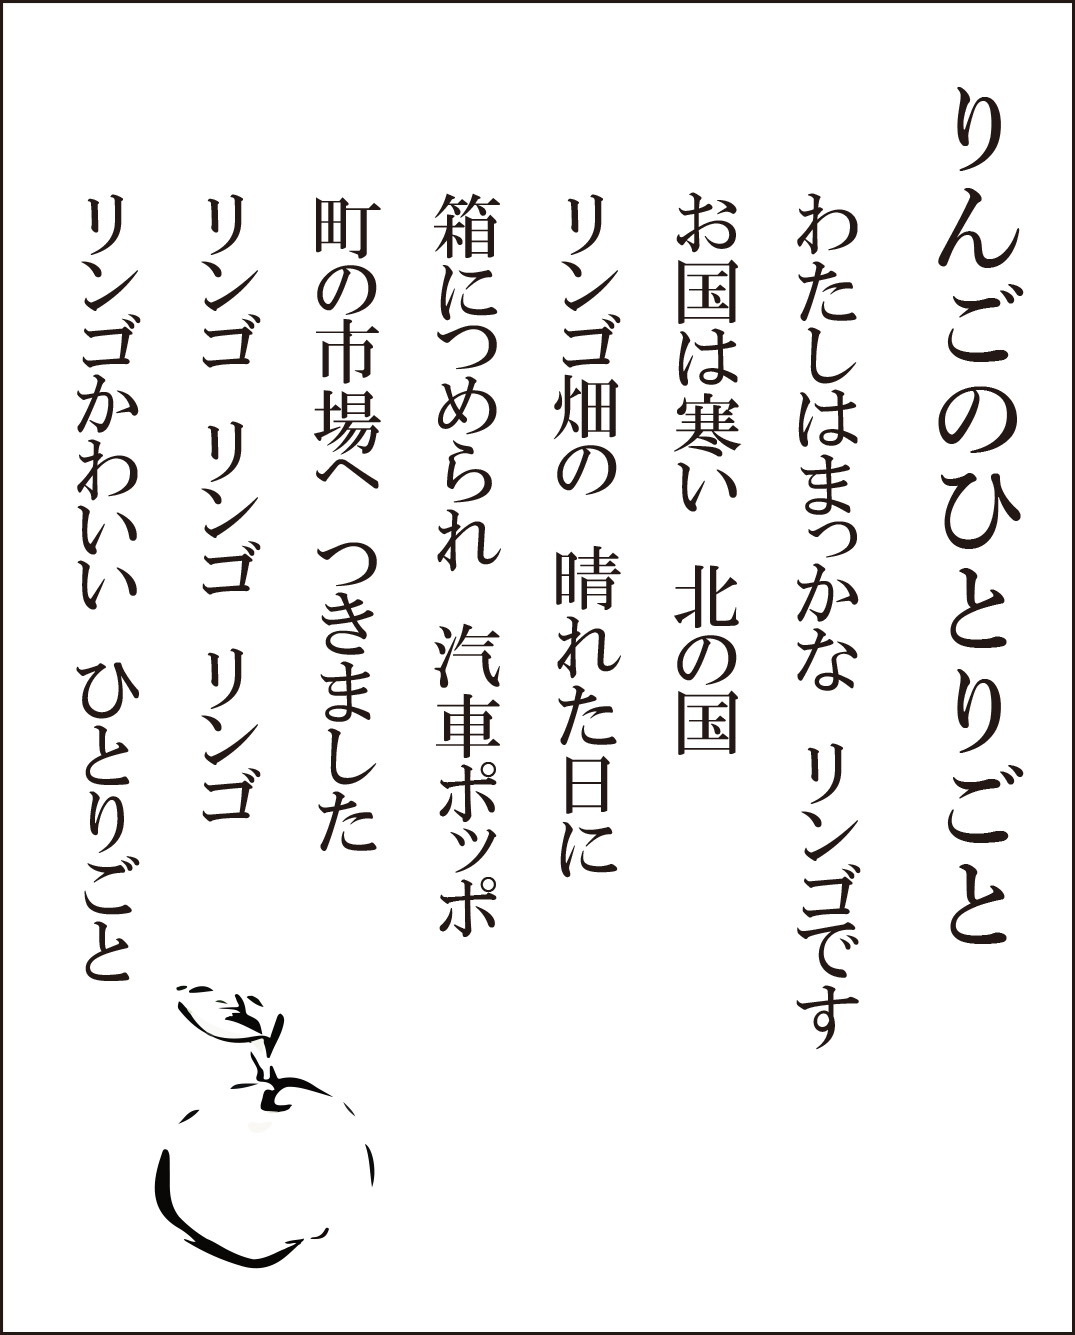 りんごのひとりごと
わたしはまっかな　リンゴです
お国は寒い　北の国
リンゴ畑の　晴れた日に
箱につめられ　汽車ポッポ
町の市場へ　つきました
リンゴ　リンゴ　リンゴ
リンゴかわいい　ひとりごと